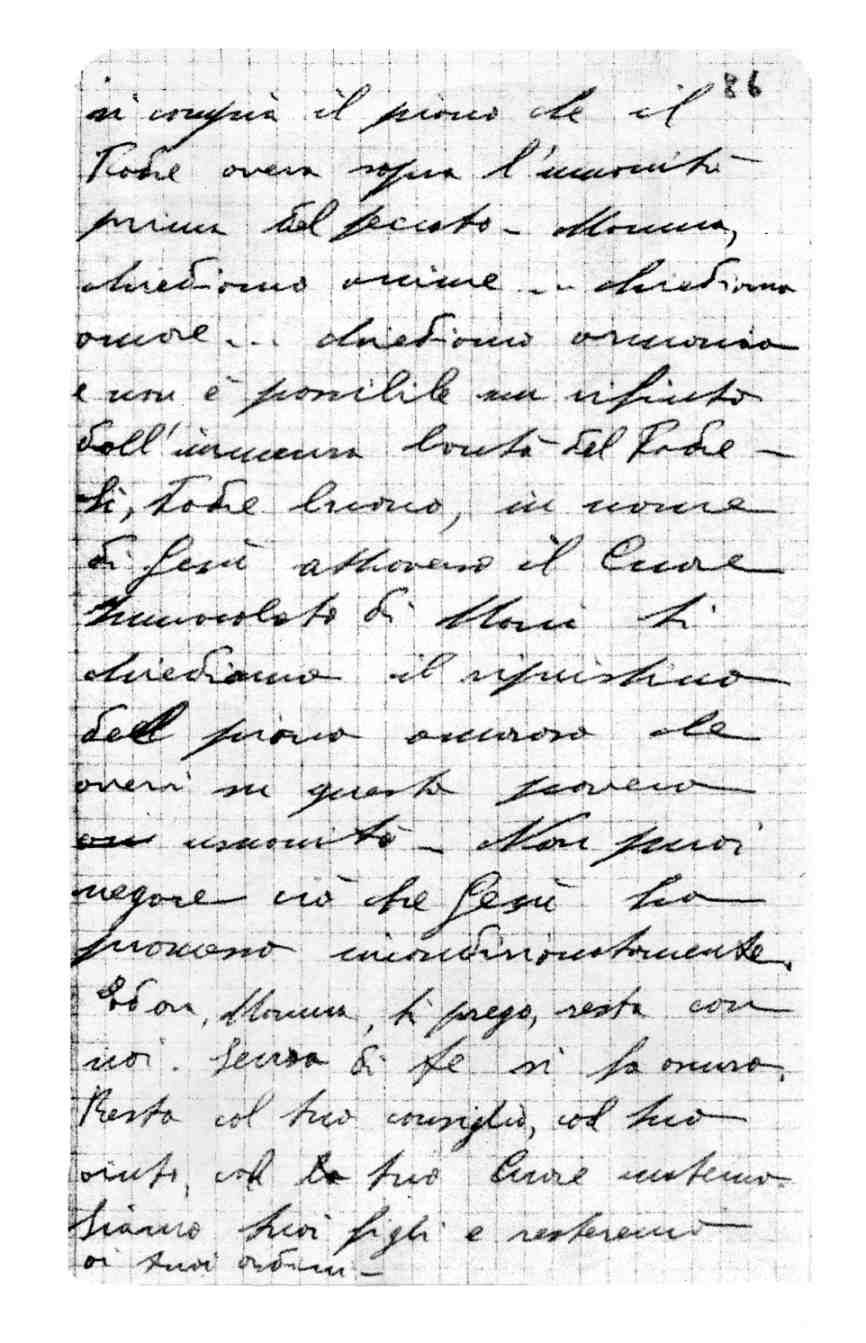 86
si compia il piano che il
Padre aveva sopra l'umanità
prima del peccato - Mamma,
chiediamo anime ... chiediamo
amore ... chiediamo armonia
e non è possibile un rifiuto
dall'immensa bontà del Padre -
Sì, Padre buono, in nome
di Gesù attraverso il Cuore
Immacolato di Maria ti
chiediamo il ripristino
del piano amoroso che
avevi su questa povera
umanità - Non puoi
negare ciò che Gesù ha
promesso incondizionatamente.
Ed ora, Mamma, ti prego, resta con
noi. Senza di te si fa oscuro.
Resta col tuo consiglio, col tuo
aiuto, col tuo Cuore materno.
Siamo tuoi figli e resteremo
ai tuoi ordini -